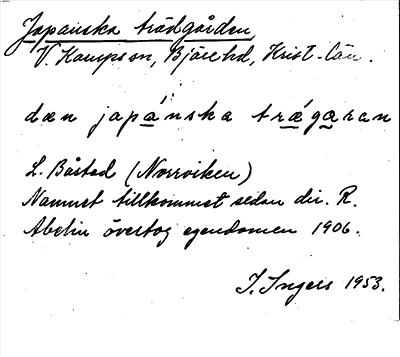 Japanska trädgården
V. Karups sn, Bjäre hd, Krist. län.
dæn japánska trǽgaran
L. Båstad (Norrviken)
Namnet tillkommet sedan dir. R.
Abelin övertog egendomen 1906.
I. Ingers 1953.